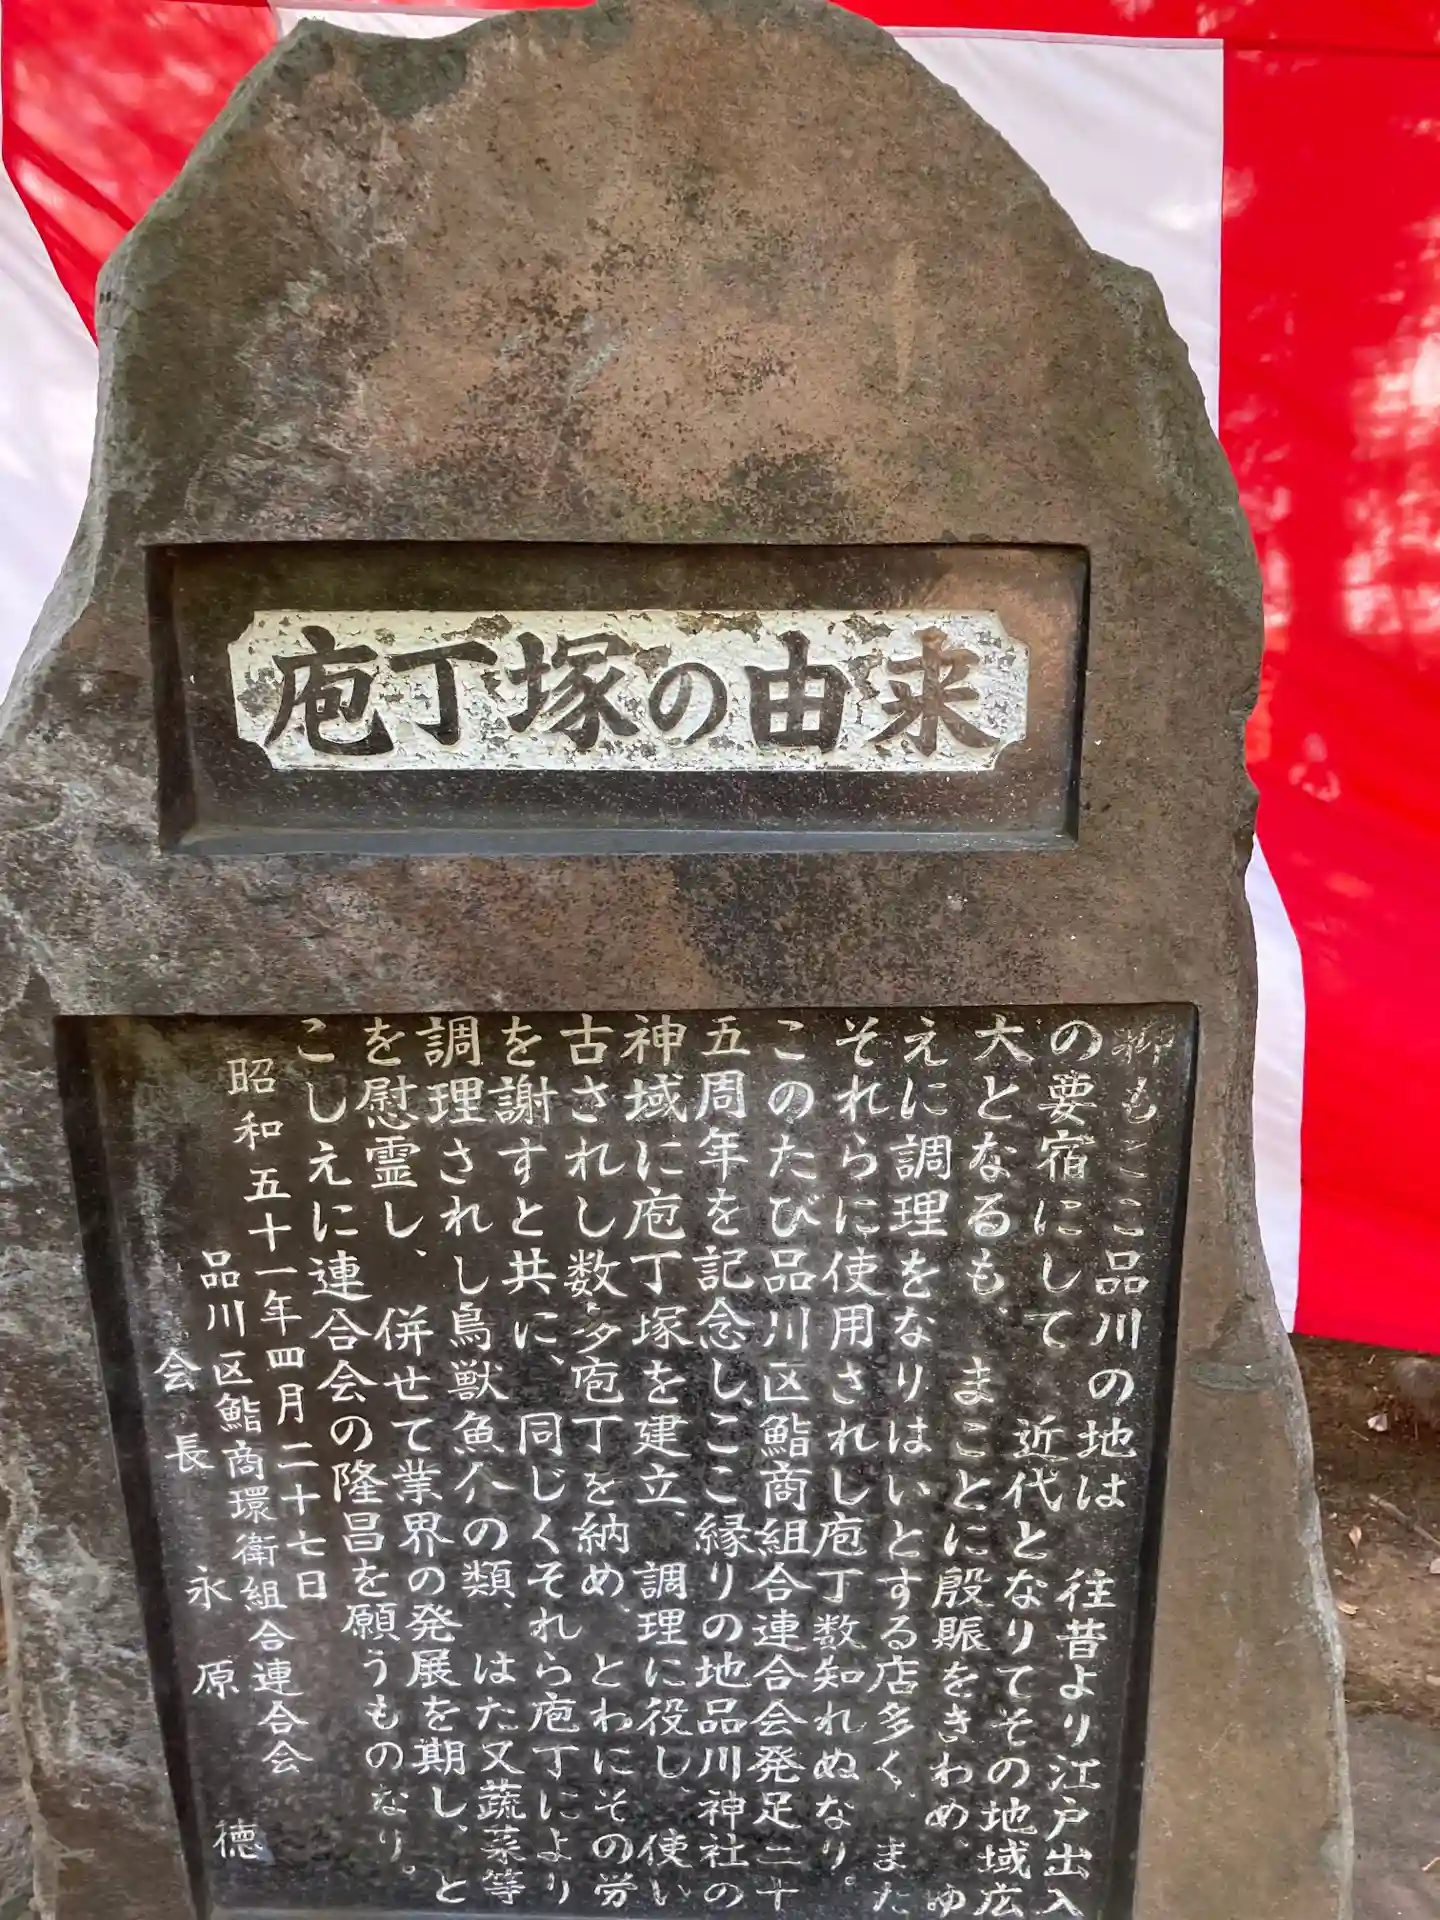 庖丁塚の由来
抑もここ品川の地は 往昔より江戸出入
の要宿にして 近代となりてその地域広
大となるも、まことに殷賑をきわめ、ゆ
えに調理をなりはいとする店多く、また
それらに使用されし庖丁数知れぬなり。
このたび品川区鮨商組合連合会発足二十
五周年を記念し、ここ縁りの地品川神社の
神域に庖丁塚を建立、調理に役し、使い
古されし数多庖丁を納め、とわにその労
を謝すと共に、同じくそれら庖丁により
調理されし鳥獣魚介の類、はた又蔬菜等
を慰霊し、併せて業界の発展を期し、と
こしえに連合会の隆昌を願うものなり。
昭和五十一年四月二十七日
品川区鮨商環衛組合連合会
会長 永原 徳